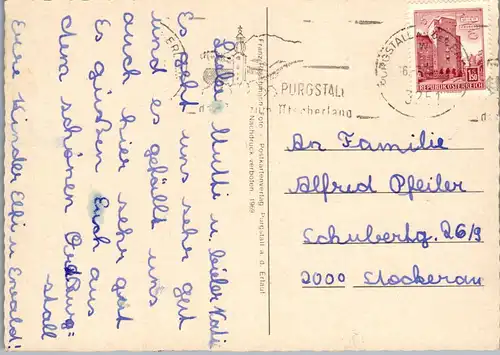 Liebe Mutti u. lieber Vati
Es geht uns sehr gut
und es gefällt uns
auch hier sehr gut
Es grüßen Euch aus
dem schönen Purgstall
Eure Kinder Elfi u. Ewald!
Nachdruck verboten 1969
PURGSTALL
Ötscherland
PURGSTALL AN DER ERLAUF
3251
REPUBLIK ÖSTERREICH
An Familie
Alfred Pfeiler
Schubertg. 26/9
2000 Stockerau